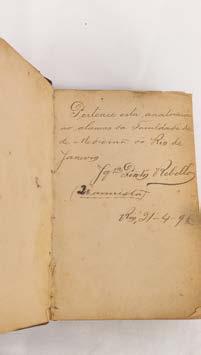 Pertence esta anatomia
ao alumno da Faculdade de
de Medicina do Rio de
Janeiro
Pinto Rebello
Rio, 21-4-9